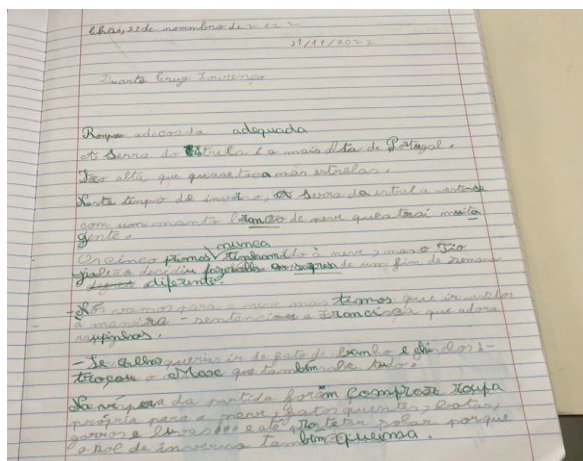 Ílhavo, 21 de novembro de 2022
21/11/2022
Duarte Cruz Lourenço
Roupa adecoada adequada
A Serra da Estrela é a mais Alta de Portugal.
Tão alta que quase toca nas estrelas.
Neste tempo de inverno, a Serra da estrela veste-se
com um manto branco de neve que atrai muita
gente.
nunca
Os cinco primos tinham ido à neve, mas o Tio
decidiu de um fim de semana
diferente.
- Nós vamos para a neve mas temos que ir vestidos
à maneira - sentenciou a Francisca que adora
roupinhas.
- Se calhar querias ir de fato de banho e chinelos -
troçou o Max que também sabe tudo.
Na véspera da partida foram comprar roupa
própria para a neve, fatos quentes, botas,
gorros e luvas... e até protetor solar porque
o sol de inverno também queima.